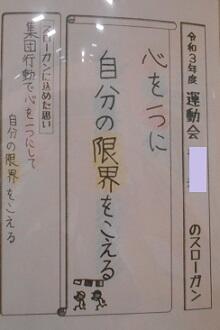 令和3年度 運動会 のスローガン
心を一つに
自分の限界をこえる
スローガンに込めた思い
集団行動で心を一つにして
自分の限界をこえる